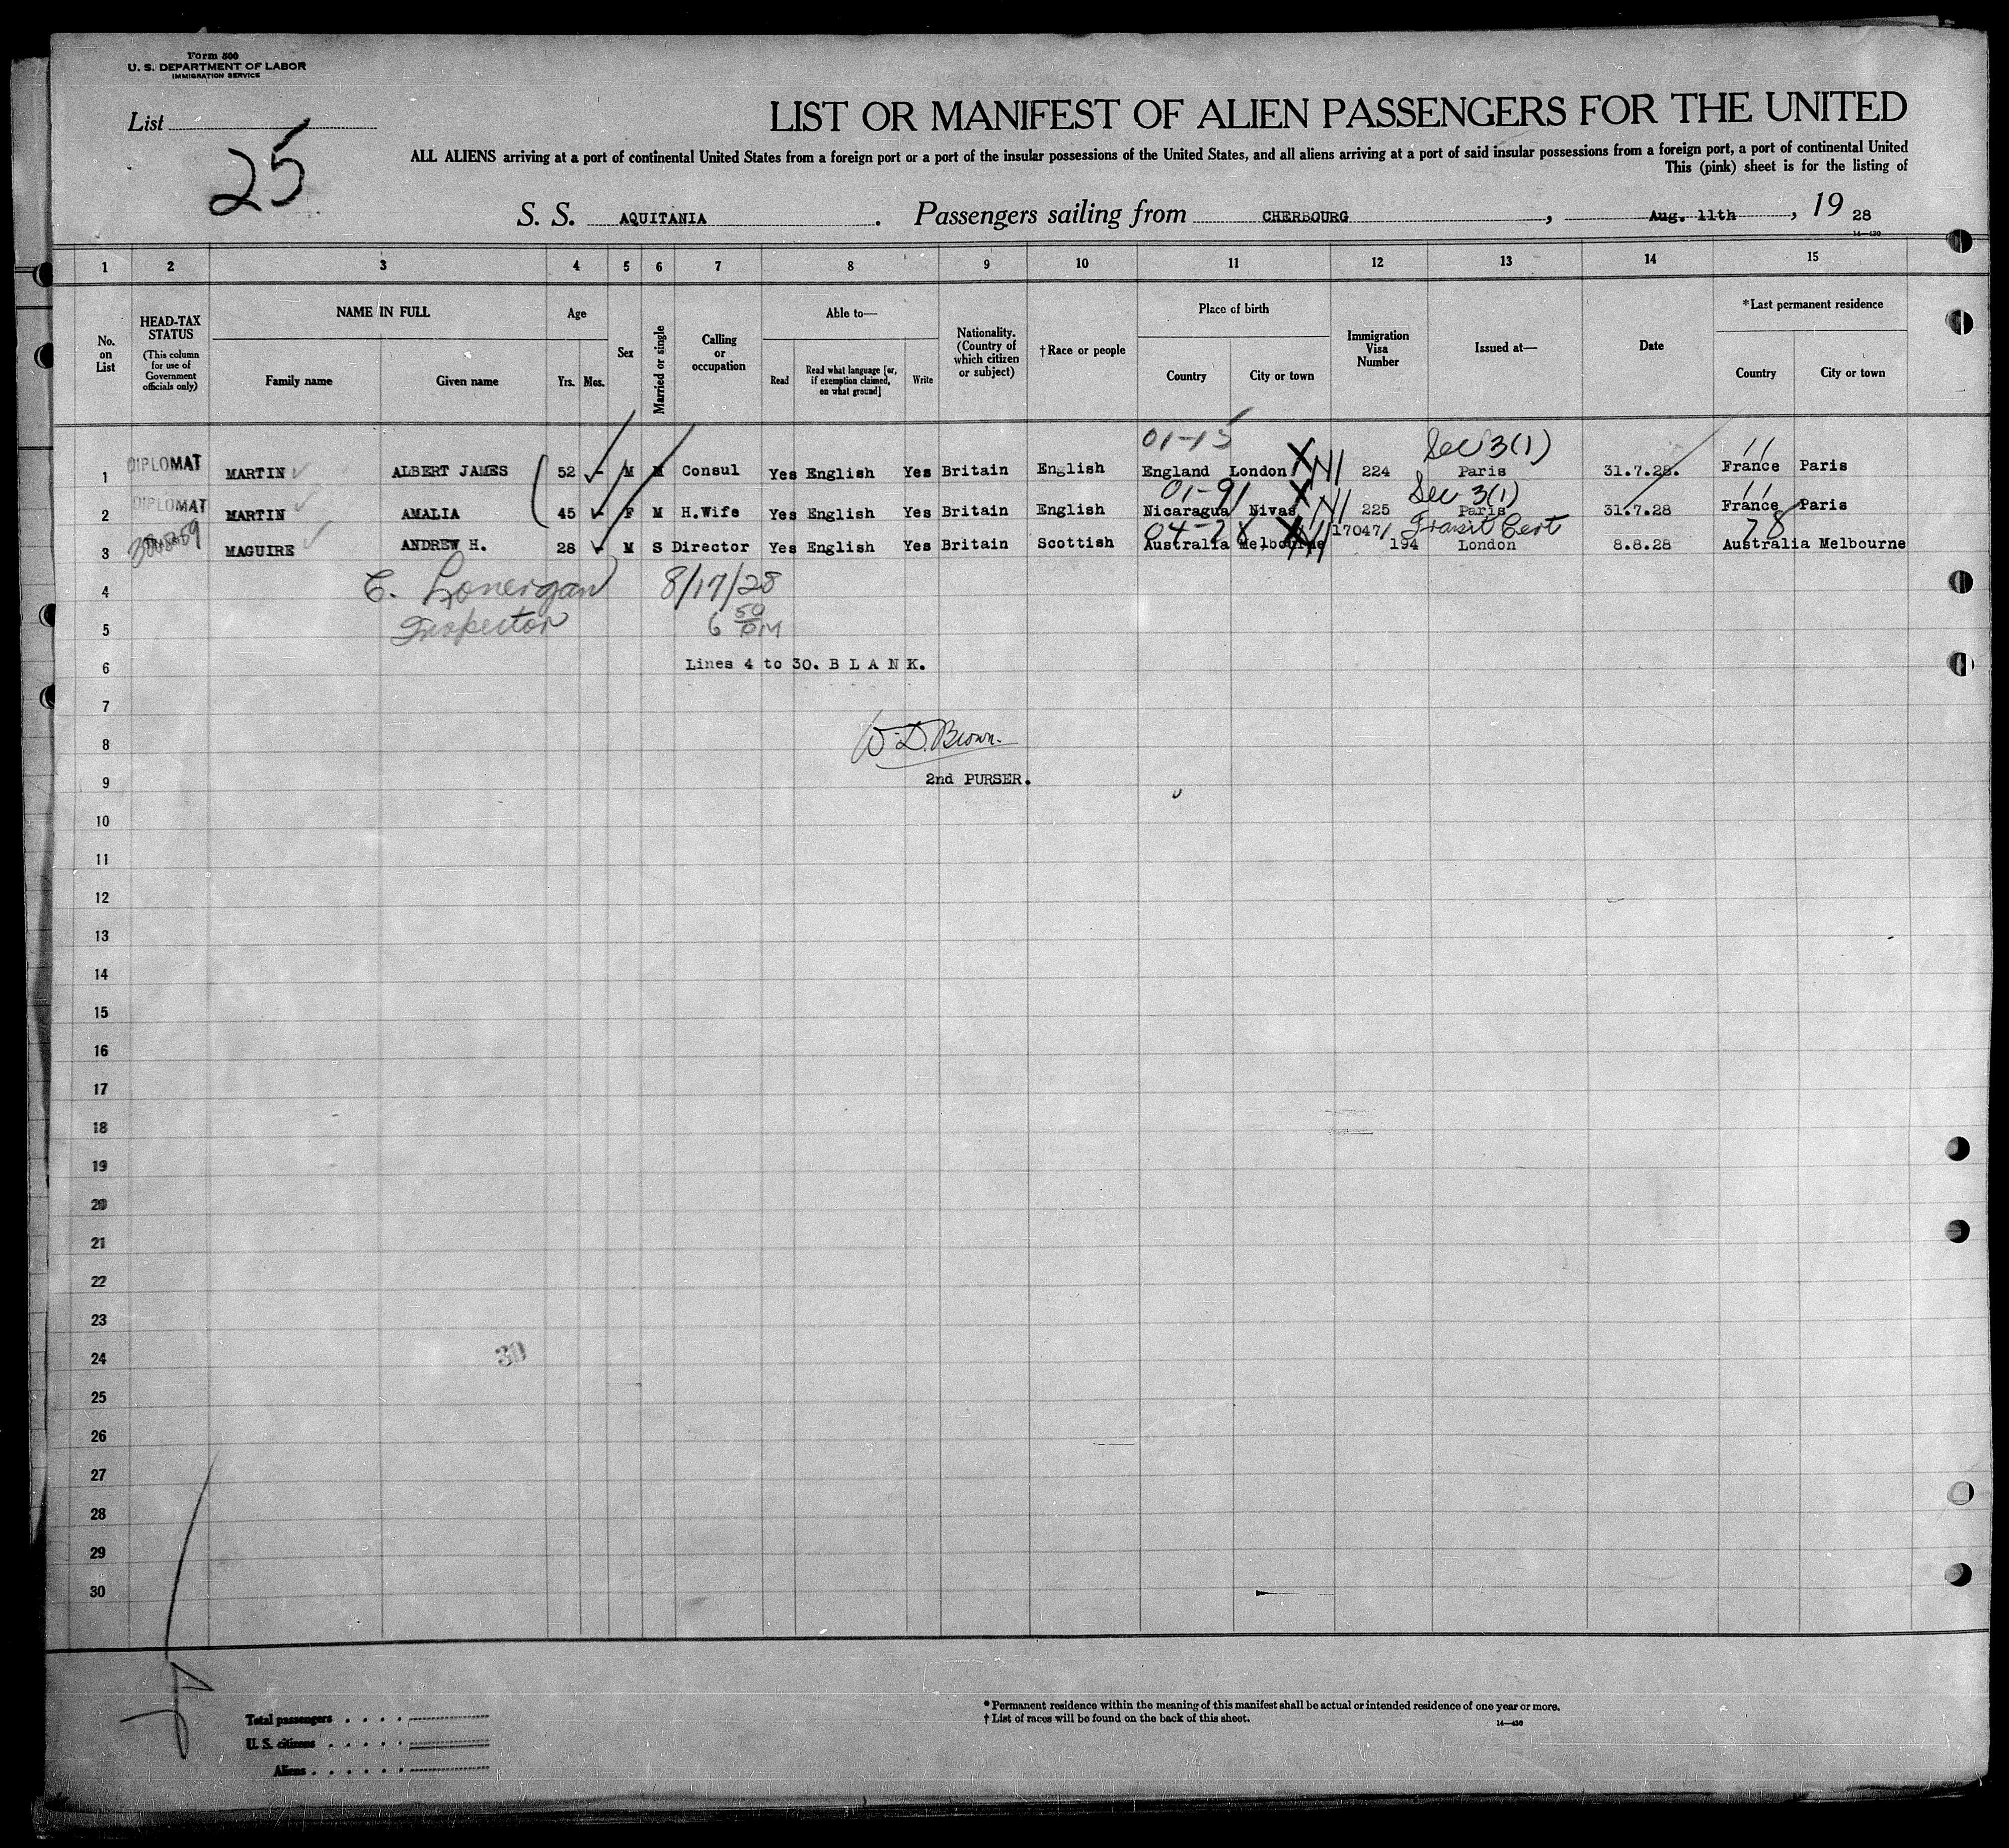 Form 500
U. S. DEPARTMENT OF LABOR
IMMIGRATION SERVICE
List
25
LIST OR MANIFEST OF ALIEN PASSENGERS FOR THE UNITED
ALL ALIENS arriving at a port of continental United States from a foreign port or a port of the insular possessions of the United States, and all aliens arriving at a port of said insular possessions from a foreign port, a port of continental United
This (pink) sheet is for the listing of
S. S. AQUITANIA. Passengers sailing from CHERBOURG, Aug. 11th, 19 28
14—430
1 2 3 4 5 6 7 8 9 10 11 12 13 14 15
No. on List
HEAD-TAX STATUS
(This column for use of Government officials only)
NAME IN FULL
Family name
Given name
Age
Yrs. Mos.
Sex
Married or single
Calling or occupation
Able to—
Read
Read what language [or, if exemption claimed, on what ground]
Write
Nationality. (Country of which citizen or subject)
†Race or people
Place of birth
Country
City or town
Immigration Visa Number
Issued at—
Date
*Last permanent residence
Country
City or town
01-15 Sec 3(1) 11
1 DIPLOMAT MARTIN ALBERT JAMES 52 - M M Consul Yes English Yes Britain English England London X 224 Paris 31.7.28. France Paris
01-91 X Sec 3(1) 11
2 DIPLOMAT MARTIN AMALIA 45 - F M H.Wife Yes English Yes Britain English Nicaragua Nivas 225 Paris 31.7.28 France Paris
17047/ Transit Cert 78
3 MAGUIRE ANDREW H. 28 - M S Director Yes English Yes Britain Scottish Australia Melbourne 194 London 8.8.28 Australia Melbourne
4 C. Lonergan 8/17/28
5 Inspector 6 50 PM
6 Lines 4 to 30. B L A N K.
7
8 W. D. Brown.
9 2nd PURSER.
10
11
12
13
14
15
16
17
18
19
20
21
22
23
24
30
25
26
27
28
29
30
Total passengers . . . .
U. S. citizens . . . . .
Aliens . . . . . .
* Permanent residence within the meaning of this manifest shall be actual or intended residence of one year or more.
† List of races will be found on the back of this sheet.
14—430